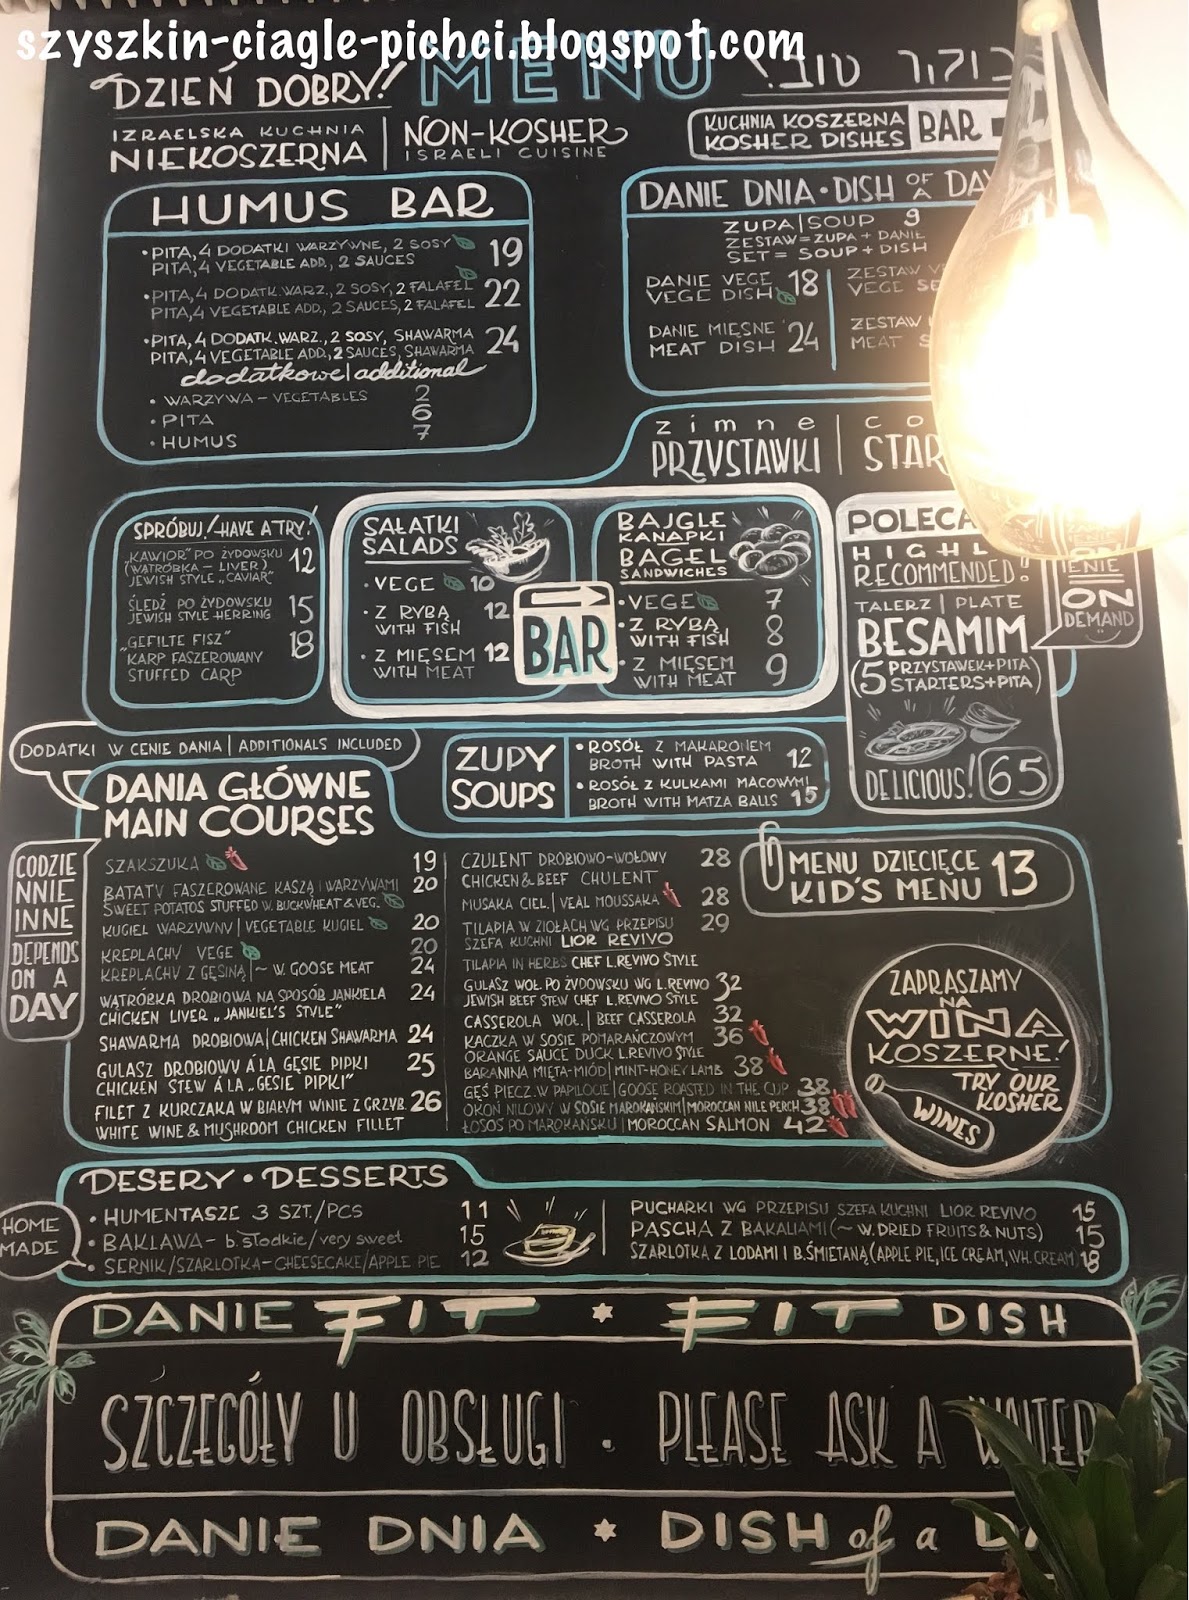 szyszkin-ciagle-pichci.blogspot.com
DZIEŃ DOBRY!
MENU
בוקר טוב!
IZRAELSKA KUCHNIA
NIEKOSZERNA
NON-KOSHER
ISRAELI CUISINE
KUCHNIA KOSZERNA
KOSHER DISHES
BAR
HUMUS BAR
• PITA, 4 DODATKI WARZYWNE, 2 SOSY 19
PITA, 4 VEGETABLE ADD., 2 SAUCES
• PITA, 4 DODATK. WARZ., 2 SOSY, 2 FALAFEL 22
PITA, 4 VEGETABLE ADD., 2 SAUCES, 2 FALAFEL
• PITA, 4 DODATK. WARZ., 2 SOSY, SHAWARMA 24
PITA, 4 VEGETABLE ADD., 2 SAUCES, SHAWARMA
dodatkowe | additional
• WARZYWA - VEGETABLES 2
• PITA 6
• HUMUS 7
DANIE DNIA • DISH OF A DA
ZUPA | SOUP 9
ZESTAW = ZUPA + DANIE
SET = SOUP + DISH
DANIE VEGE 18
VEGE DISH
ZESTAW
VEGE
DANIE MIĘSNE 24
MEAT DISH
ZESTAW
MEAT
zimne
PRZYSTAWKI
SPRÓBUJ! HAVE A TRY!
„KAWIOR” PO ŻYDOWSKU 12
(WĄTRÓBKA - LIVER)
JEWISH STYLE „CAVIAR”
ŚLEDŹ PO ŻYDOWSKU 15
JEWISH STYLE HERRING
„GEFILTE FISZ” 18
KARP FASZEROWANY
STUFFED CARP
SAŁATKI
SALADS
• VEGE 10
• Z RYBĄ 12
WITH FISH
• Z MIĘSEM 12
WITH MEAT
BAR
BAJGLE
KANAPKI
BAGEL
SANDWICHES
• VEGE 7
• Z RYBĄ 8
WITH FISH
• Z MIĘSEM 9
WITH MEAT
POLECA
HIGHL
RECOMMENDED!
TALERZ | PLATE
BESAMIM
(5 PRZYSTAWEK+PITA
STARTERS+PITA)
DELICIOUS! 65
ON
DEMAND
DODATKI W CENIE DANIA | ADDITIONALS INCLUDED
DANIA GŁÓWNE
MAIN COURSES
ZUPY
SOUPS
• ROSÓŁ Z MAKARONEM 12
BROTH WITH PASTA
• ROSÓŁ Z KULKAMI MACOWYMI
BROTH WITH MATZA BALLS 15
CODZIE
NNIE
INNE
DEPENDS
ON A
DAY
SZAKSZUKA 19
BATATY FASZEROWANE KASZĄ I WARZYWAMI 20
SWEET POTATOS STUFFED W. BUCKWHEAT & VEG.
KUGIEL WARZYWNY | VEGETABLE KUGIEL 20
KREPLACHY VEGE 20
KREPLACHY Z GĘSINĄ | ~ W. GOOSE MEAT 24
WĄTRÓBKA DROBIOWA NA SPOSÓB JANKIELA 24
CHICKEN LIVER „JANKIEL'S STYLE”
SHAWARMA DROBIOWA | CHICKEN SHAWARMA 24
GULASZ DROBIOWY Á LA GĘSIE PIPKI 25
CHICKEN STEW Á LA „GESIE PIPKI”
FILET Z KURCZAKA W BIAŁYM WINIE Z GRZYB. 26
WHITE WINE & MUSHROOM CHICKEN FILLET
CZULENT DROBIOWO-WOŁOWY 28
CHICKEN & BEEF CHULENT
MUSAKA CIEL. | VEAL MOUSSAKA 28
TILAPIA W ZIOŁACH WG PRZEPISU 29
SZEFA KUCHNI LIOR REVIVO
TILAPIA IN HERBS CHEF L.REVIVO STYLE
GULASZ WOŁ. PO ŻYDOWSKU WG L.REVIVO 32
JEWISH BEEF STEW CHEF L.REVIVO STYLE
CASSEROLA WOŁ. | BEEF CASSEROLA 32
KACZKA W SOSIE POMARAŃCZOWYM 36
ORANGE SAUCE DUCK L.REVIVO STYLE
BARANINA MIĘTA-MIÓD | MINT-HONEY LAMB 38
GĘŚ PIECZ. W PAPILOCIE | GOOSE ROASTED IN THE CUP 38
OKOŃ NILOWY W SOSIE MAROKAŃSKIM | MOROCCAN NILE PERCH 38
ŁOSOŚ PO MAROKAŃSKU | MOROCCAN SALMON 42
MENU DZIECIĘCE 13
KID'S MENU
ZAPRASZAMY
NA
WINA
KOSZERNE!
TRY OUR
KOSHER
WINES
DESERY • DESSERTS
HOME
MADE
• HUMENTASZE 3 SZT./PCS 11
• BAKLAWA - b. słodkie/very sweet 15
• SERNIK/SZARLOTKA - CHEESECAKE/APPLE PIE 12
PUCHARKI WG PRZEPISU SZEFA KUCHNI LIOR REVIVO 15
PASCHA Z BAKALIAMI (~ W. DRIED FRUITS & NUTS) 15
SZARLOTKA Z LODAMI I B.ŚMIETANĄ (APPLE PIE, ICE CREAM, WH. CREAM) 18
DANIE FIT * FIT DISH
SZCZEGÓŁY U OBSŁUGI • PLEASE ASK A WAITER
DANIE DNIA * DISH of a DA